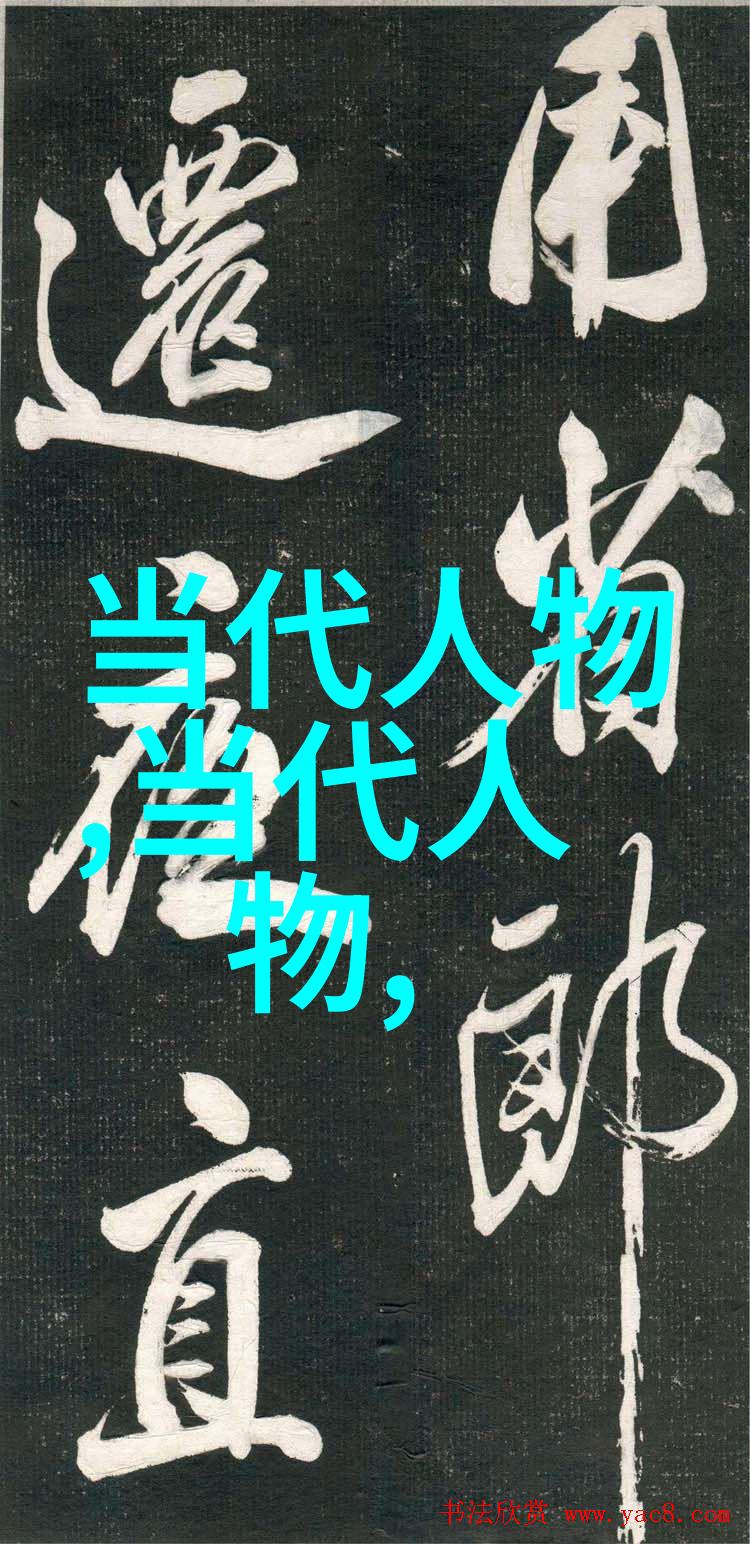 用省郎
遷直
当代人物
,当代人
物,
书法欣赏 www.yac8.com